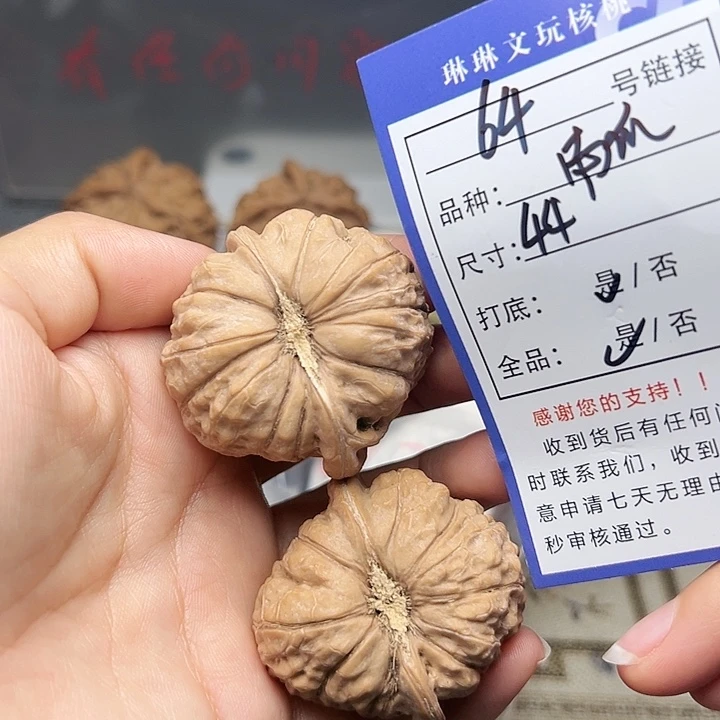 琳琳文玩核桃
64 号链接
品种：南瓜
尺寸：44
打底：是/否
全品：是/否
感谢您的支持！！
收到货后有任何
时联系我们，收到
意申请七天无理由
秒审核通过。